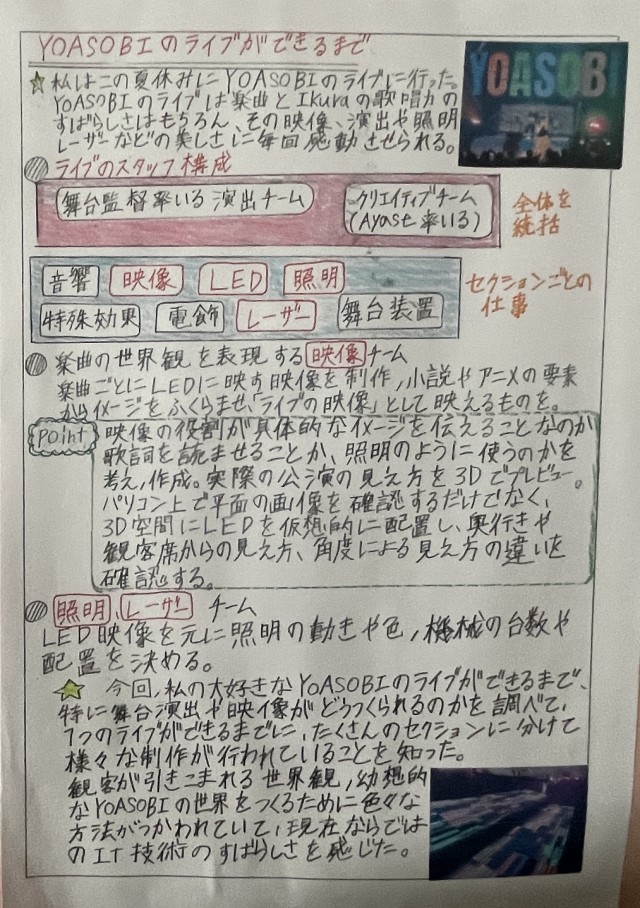 YOASOBIのライブができるまで
YOASOBI
☆私はこの夏休みにYOASOBIのライブに行った。
YOASOBIのライブは楽曲とIkuraの歌唱力の
すばらしさはもちろん、その映像、演出や照明
レーザーなどの美しさに毎回感動させられる。
ライブのスタッフ構成
舞台監督率いる演出チーム
クリエイティブチーム
(Ayase率いる)
全体を
統括
音響 映像 LED 照明
特殊効果 電飾 レーザー 舞台装置
セクションごとの
仕事
楽曲の世界観を表現する映像チーム
楽曲ごとにLEDに映す映像を制作,小説やアニメの要素
からイメージをふくらませ、「ライブの映像」として映えるものを。
Point
映像の役割が具体的なイメージを伝えることなのか
歌詞を読ませることか、照明のように使うのかを
考え,作成。実際の公演の見え方を3Dでプレビュー。
パソコン上で平面の画像を確認するだけでなく、
3D空間にLEDを仮想的に配置し、奥行きや
観客席からの見え方、角度による見え方の違いを
確認する。
照明、レーザー チーム
LED映像を元に照明の動きや色,機械の台数や
配置を決める。
☆今回,私の大好きなYOASOBIのライブができるまで、
特に舞台演出や映像がどうつくられるのかを調べて、
1つのライブができるまでに、たくさんのセクションに分けて
様々な制作が行われていることを知った。
観客が引きこまれる世界観,幼想的
なYOASOBIの世界をつくるために色々な
方法がつかわれていて、現在ならでは
のIT技術のすばらしさを感じた。